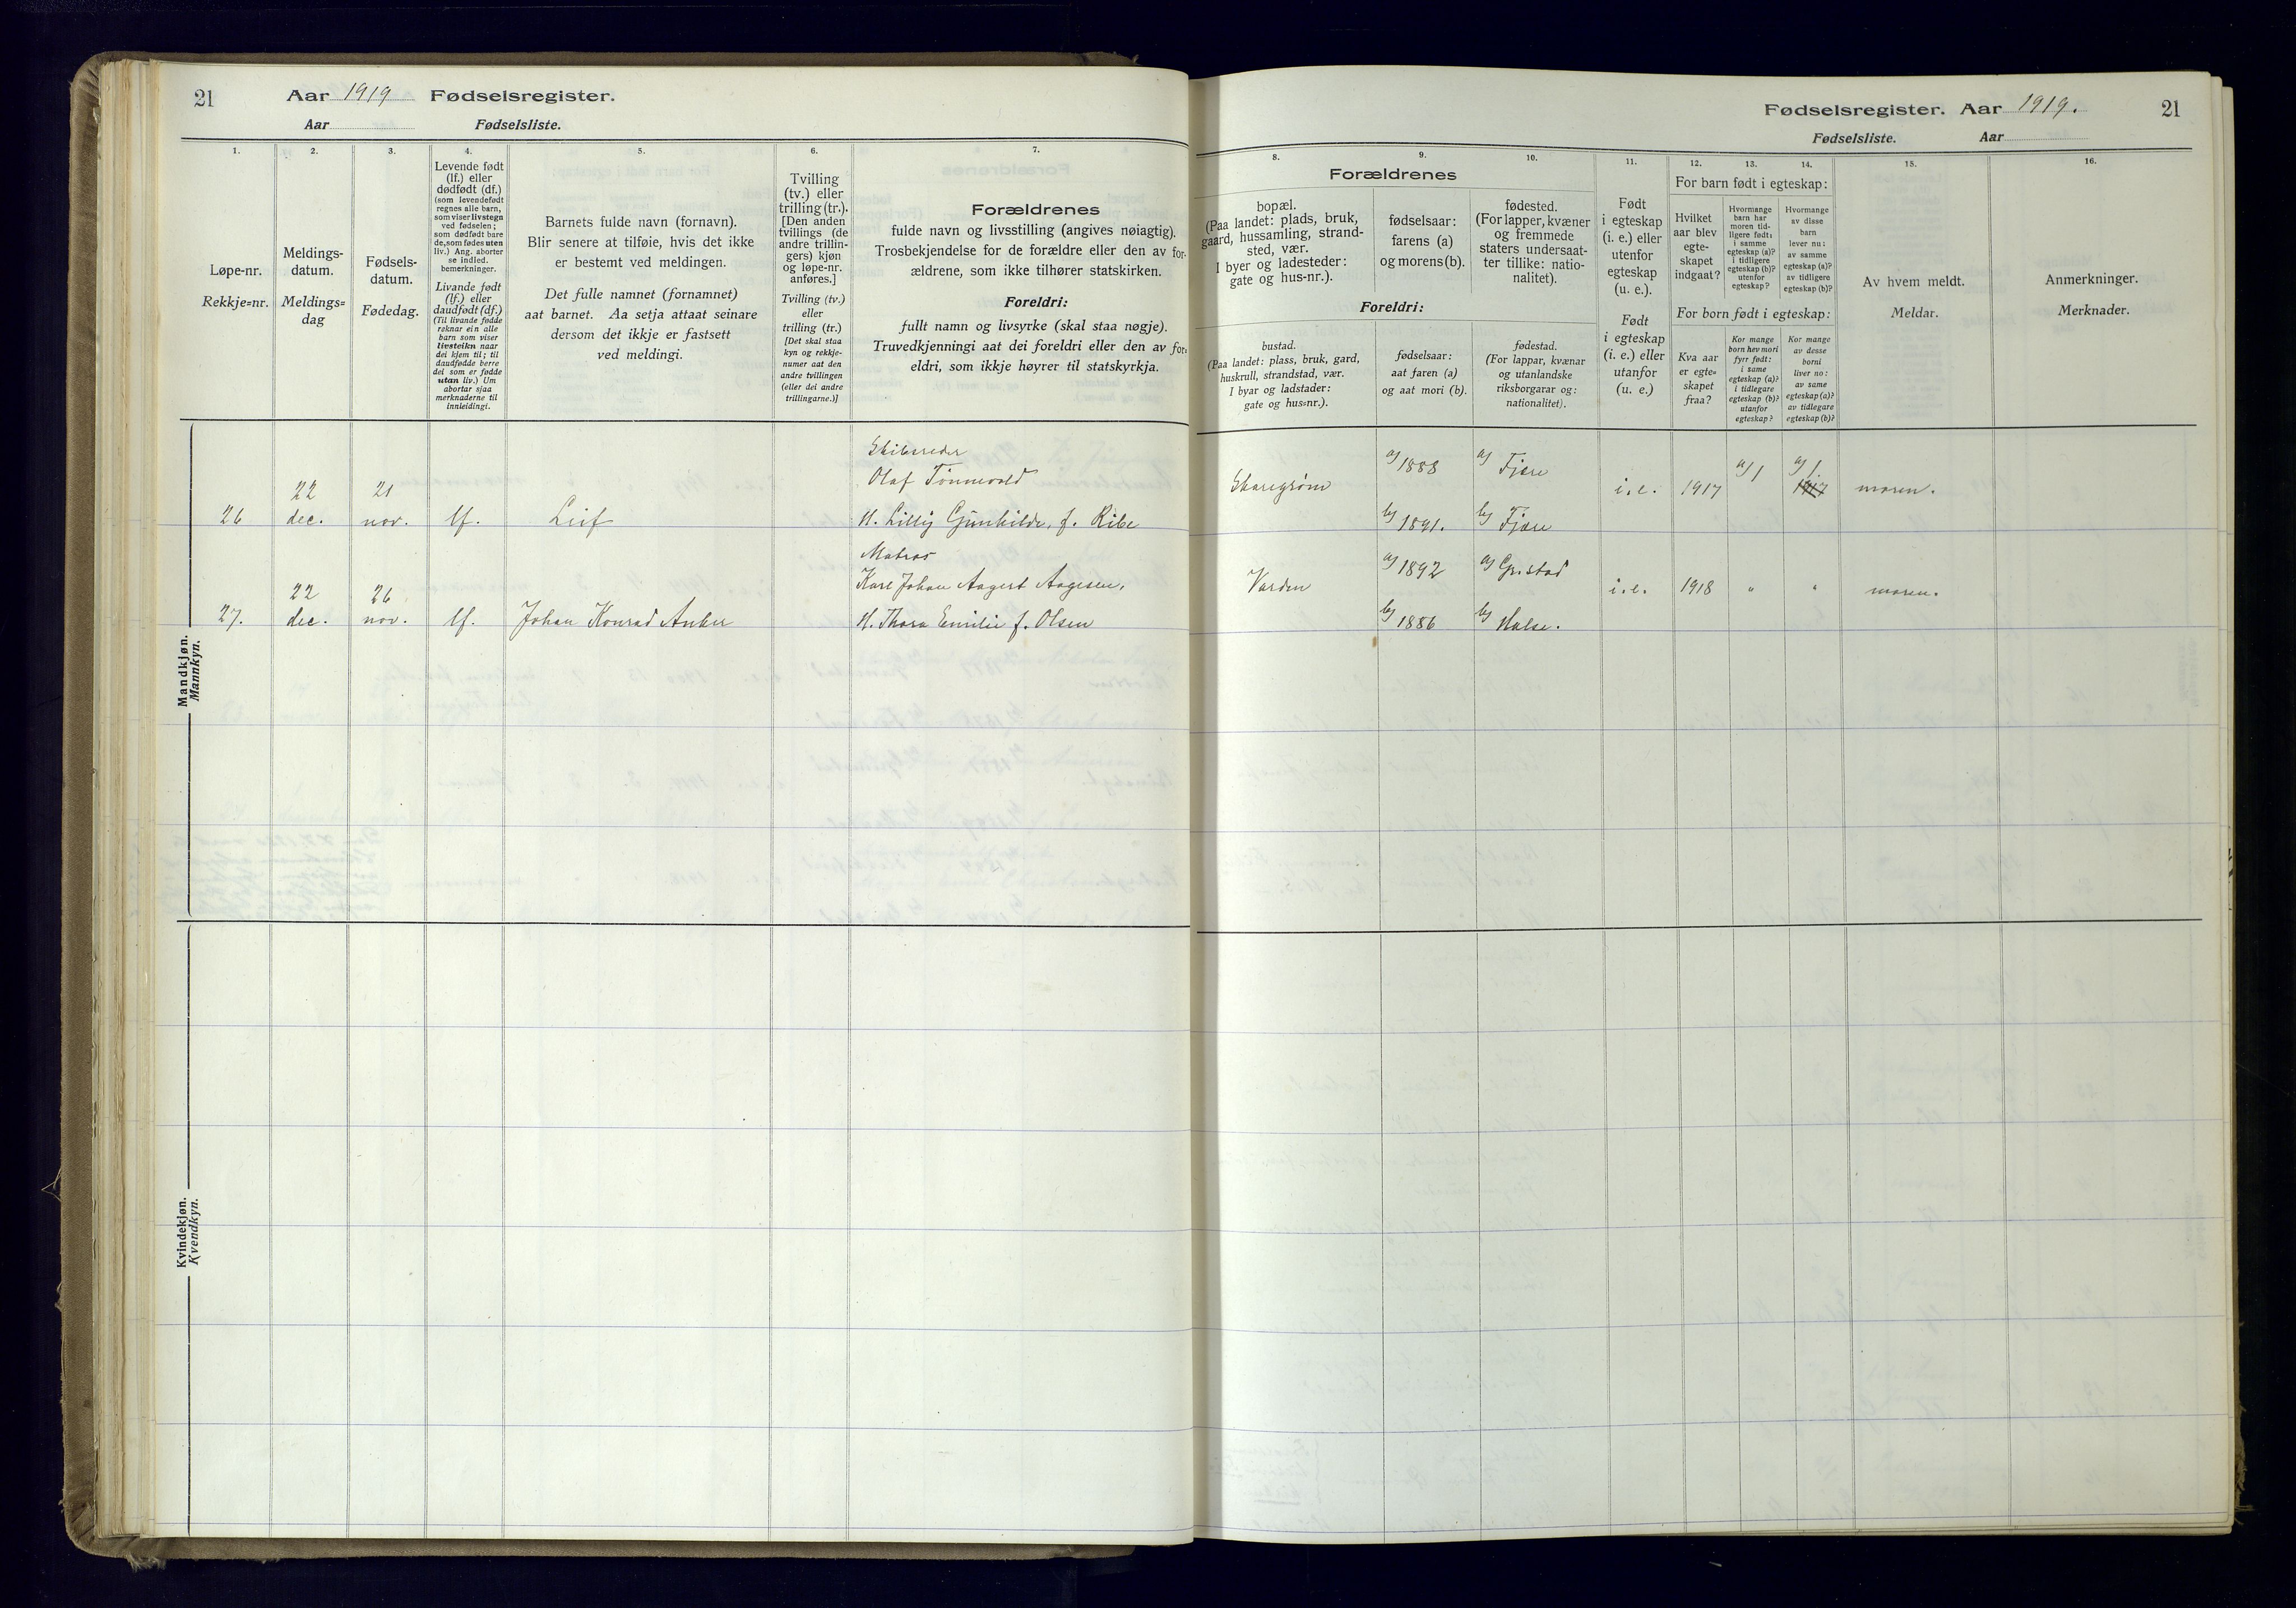 21
Aar 1919 Fødselsregister.
Aar Fødselsliste.
1.
Løpe-nr.
Rekkje=nr.
2.
Meldings-
datum.
Meldings=
dag
3.
Fødsels-
datum.
Fødedag.
4.
Levende født
(lf.) eller
dødfødt (df.)
(som levendefødt
regnes alle barn,
som viser livstegn
ved fødselen;
som dødfødt bare
de, som fødes uten
liv.) Ang. aborter
se indled.
bemerkninger.
Livande født
(lf.) eller
daudfødt (df.)
(Til livande fødde
reknar ein alle
barn som viser
livsteikn naar
dei kjem til; til
daudfødde berre
dei som er fødde
utan liv.) Um
abortar sjaa
merknaderne til
innleidingi.
5.
Barnets fulde navn (fornavn).
Blir senere at tilføie, hvis det ikke
er bestemt ved meldingen.
Det fulle namnet (fornamnet)
aat barnet. Aa setja attaat seinare
dersom det ikkje er fastsett
ved meldingi.
6.
Tvilling
(tv.) eller
trilling (tr.).
[Den anden
tvillings (de
andre trillin-
gers) kjøn
og løpe-nr.
anføres.]
Tvilling (tv.)
eller
trilling (tr.)
[Det skal staa
kyn og rekkje-
numer aat den
andre tvillingen
(eller dei andre
trillingarne.)]
7.
Forældrenes
fulde navn og livsstilling (angives nøiagtig).
Trosbekjendelse for de forældre eller den av for-
ældrene, som ikke tilhører statskirken.
Foreldri:
fullt namn og livsyrke (skal staa nøgje).
Truvedkjenningi aat dei foreldri eller den av for-
eldri, som ikkje høyrer til statskyrkja.
Mandkjøn.
Mannkyn.
26
22
dec.
21
nov.
lf.
Leif
Skibsreder
Olaf Tønnevold
H. Lilly Gunhilde, f. Ribe
27.
22
dec.
26
nov.
lf.
Johan Konrad Anker
Matros
Karl Johan Aagert Aagesen,
H. Thora Emilie f. Olsen
Kvindekjøn.
Kvendkyn.
Fødselsregister. Aar 1919.
21
Fødselsliste. Aar
8.
Forældrenes
bopæl.
(Paa landet: plads, bruk,
gaard, hussamling, strand-
sted, vær.
I byer og ladesteder:
gate og hus-nr.).
Foreldri:
bustad.
(Paa landet: plass, bruk, gard,
huskrull, strandstad, vær.
I byar og ladstader:
gate og hus=nr.).
9.
fødselsaar:
farens (a)
og morens (b).
fødselsaar:
aat faren (a)
og aat mori (b).
10.
fødested.
(For lapper, kvæner
og fremmede
staters undersaat-
ter tillike: natio-
nalitet).
fødestad.
(For lappar, kvænar
og utanlandske
riksborgarar og:
nationalitet).
11.
Født
i egteskap
(i. e.) eller
utenfor
egteskap
(u. e.).
Født
i egteskap
(i. e.) eller
utanfor
(u. e.)
12.
13.
14.
For barn født i egteskap:
Hvilket
aar blev
egte-
skapet
indgaat?
Hvormange
barn har
moren tid-
ligere født:
i samme
egteskap (a)?
i tidligere
egteskap (b)?
utenfor
egteskap?
Hvormange
av disse
barn
lever nu:
av samme
egteskap (a)?
av tidligere
egteskap (b)?
For born født i egteskap:
Kva aar
er egte-
skapet
fraa?
Kor mange
born hev mori
fyrr født:
i same
egteskap (a)?
i tidlegare
egteskap (b)?
utanfor
egteskap?
Kor mange
av desse
borni
liver no:
av same
egteskap (a)?
av tidlegare
egteskap (b)?
15.
Av hvem meldt.
Meldar.
16.
Anmerkninger.
Merknader.
a) 1888
a) Fjære
i.e.
1917
a) 1
a) 1.
1917
moren.
b) 1891.
b) Fjære
Varden
a) 1892
a) Gr.stad
i.e.
1918
"
"
moren.
b) 1886
b) Halse.